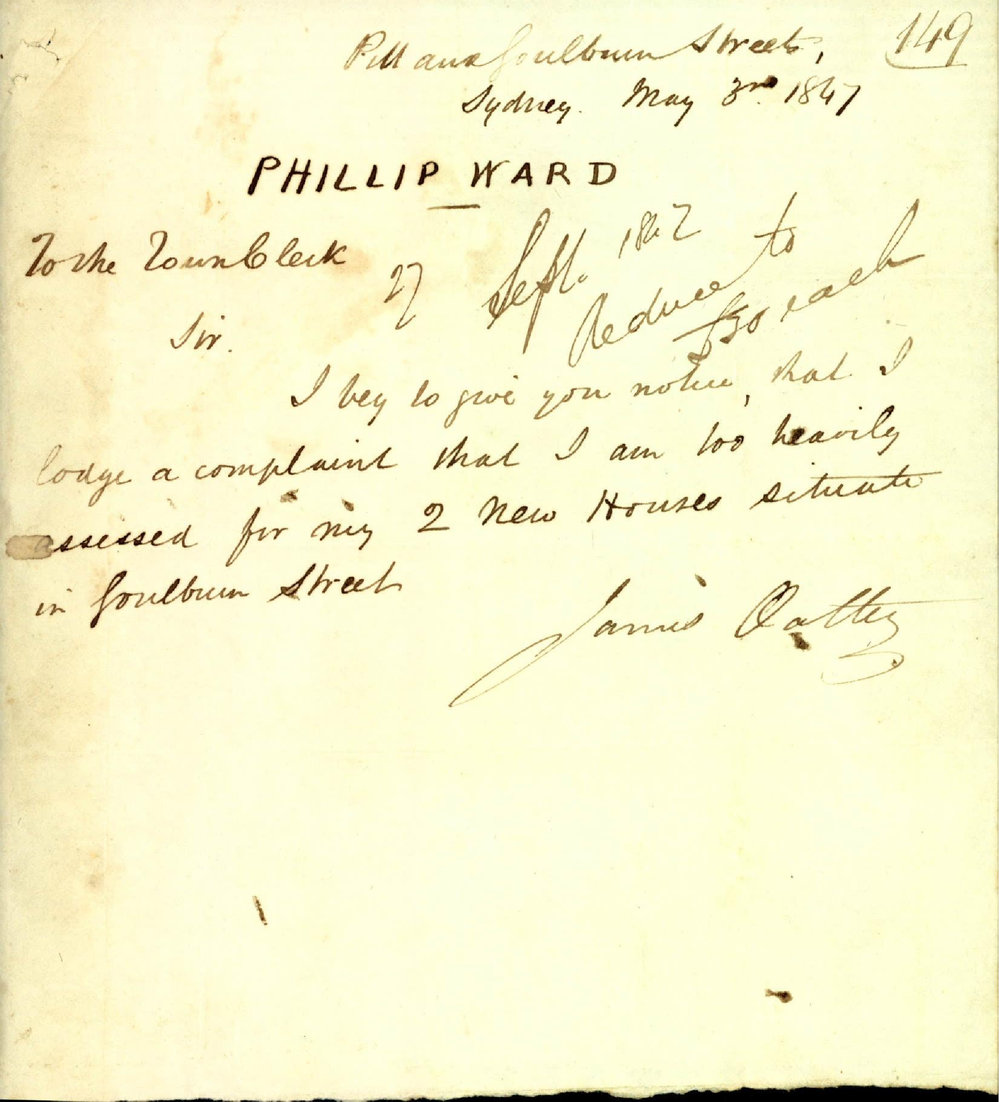 149
Pitt and Goulburn Streets,
Sydney. May 3rd. 1847
PHILLIP WARD
To the Town Clerk
27 Sept. 1847
Reduce to
£30 each
Sir.
I beg to give you notice, that I
lodge a complaint that I am too heavily
assessed for my 2 New Houses situate
in Goulburn Street
James Oatley